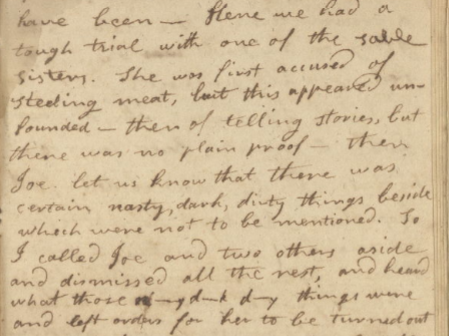 have been — Here we had a
tough trial with one of the sable
sisters. She was first accused of
steeling meat, but this appeared un-
founded — then of telling stories, but
there was no plain proof — then
Joe. let us know that there was
certain nasty, dark, dirty things beside
which were not to be mentioned. So
I called Joe and two others aside
and dismissed all the rest, and heard
what those n—y d—k d—y things were
and left orders for her to be turned out